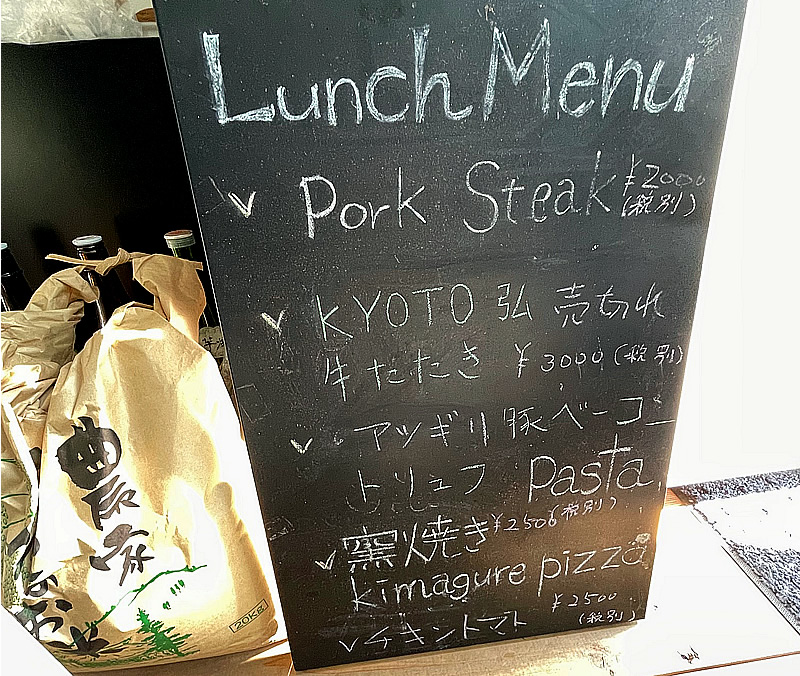 Lunch Menu
Pork Steak ¥2000
(税別)
KYOTO 弘 売切れ
牛たたき ¥3000 (税別)
アツギリ豚ベーコン
トリュフ Pasta
¥2500 (税別)
窯焼き
kimagure pizza
¥2500
チキントマト (税別)
農家
のお米
20KG